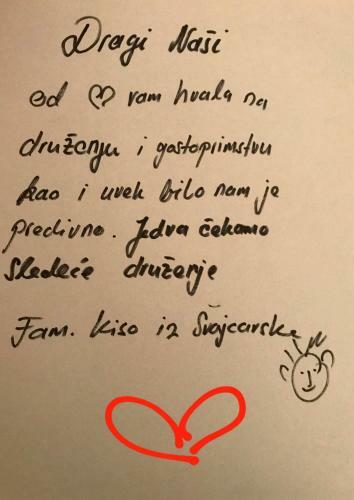 Dragi Naši
od ♡ vam hvala na
druženju i gostoprimstvu
kao i uvek bilo nam je
predivno. Jedva čekamo
sledeće druženje
Fam. Kiso iz Švojcarske